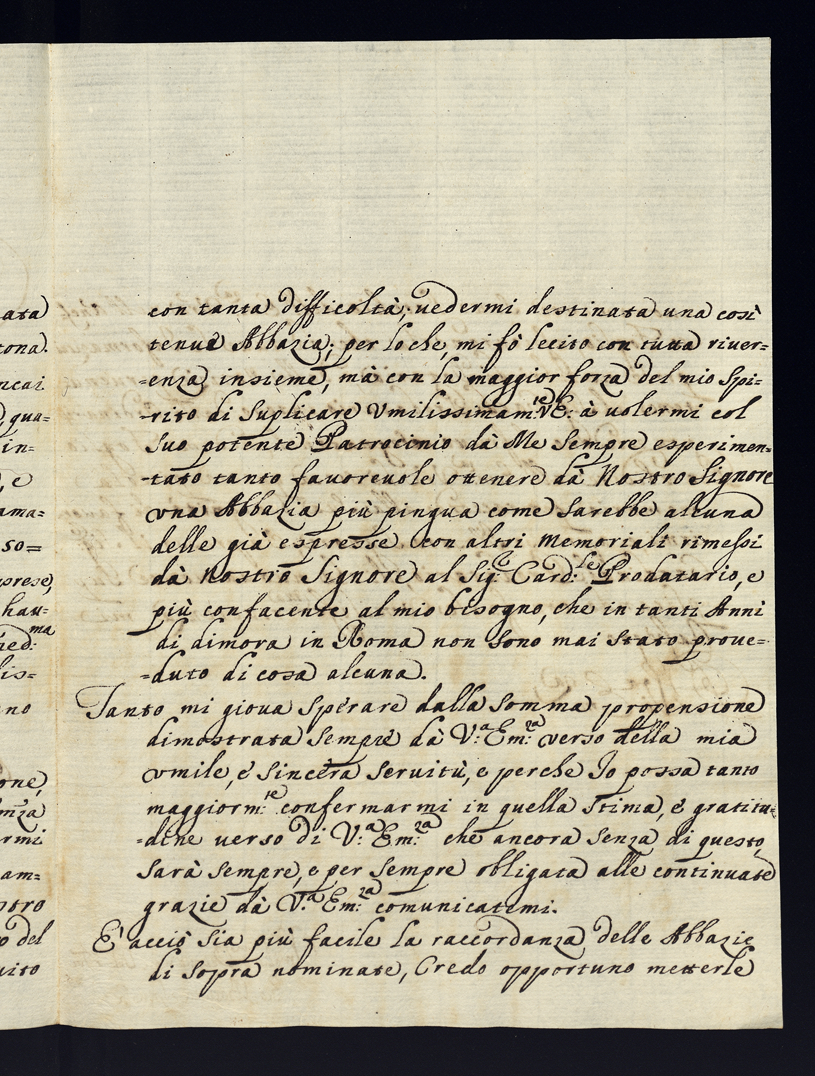 con tanta difficoltà, vedermi destinata una così
tenue Abbazia; per lo che, mi fò lecito con tutta river=
=enza insieme, mà con la maggior forza del mio Spi=
=rito di Suplicare Vmilissimam:te V.E: à volermi col
suo potente Patrocinio dà Me Sempre esperimen=
=tato tanto favorevole ottenere dà Nostro Signore
vna Abbazia più pingua come Sarebbe alcuna
delle già espresse con altri Memoriali rimessi
dà Nostro Signore al Sig:r Card:le Prodatario, e
più confacente al mio bisogno, che in tanti Anni
di dimora in Roma non Sono mai Stato prove=
=duto di cosa alcuna.
Tanto mi giova Sperare dalla Somma propensione
dimostrata Sempre dà V:a Em:za verso della mia
vmile, è Sincera Servitù, e perche Io possa tanto
maggiorm:te confermarmi in quella Stima, è gratitu=
=dine verso di V:a Em:za che ancora Senza di questo,
Sarà Sempre, e per Sempre obligata alle continuate
grazie dà V:a Em:za comunicatemi.
E' acciò Sia più facile la raccordanza delle Abbazie
di Sopra nominate, Credo opportuno metterle
ata
tona.
ncai
qua=
in=
, e
ama=
so=
prese,
hau=
med:ma
lis=
no
one,
enza
rmi
am=
stro
o del
vito